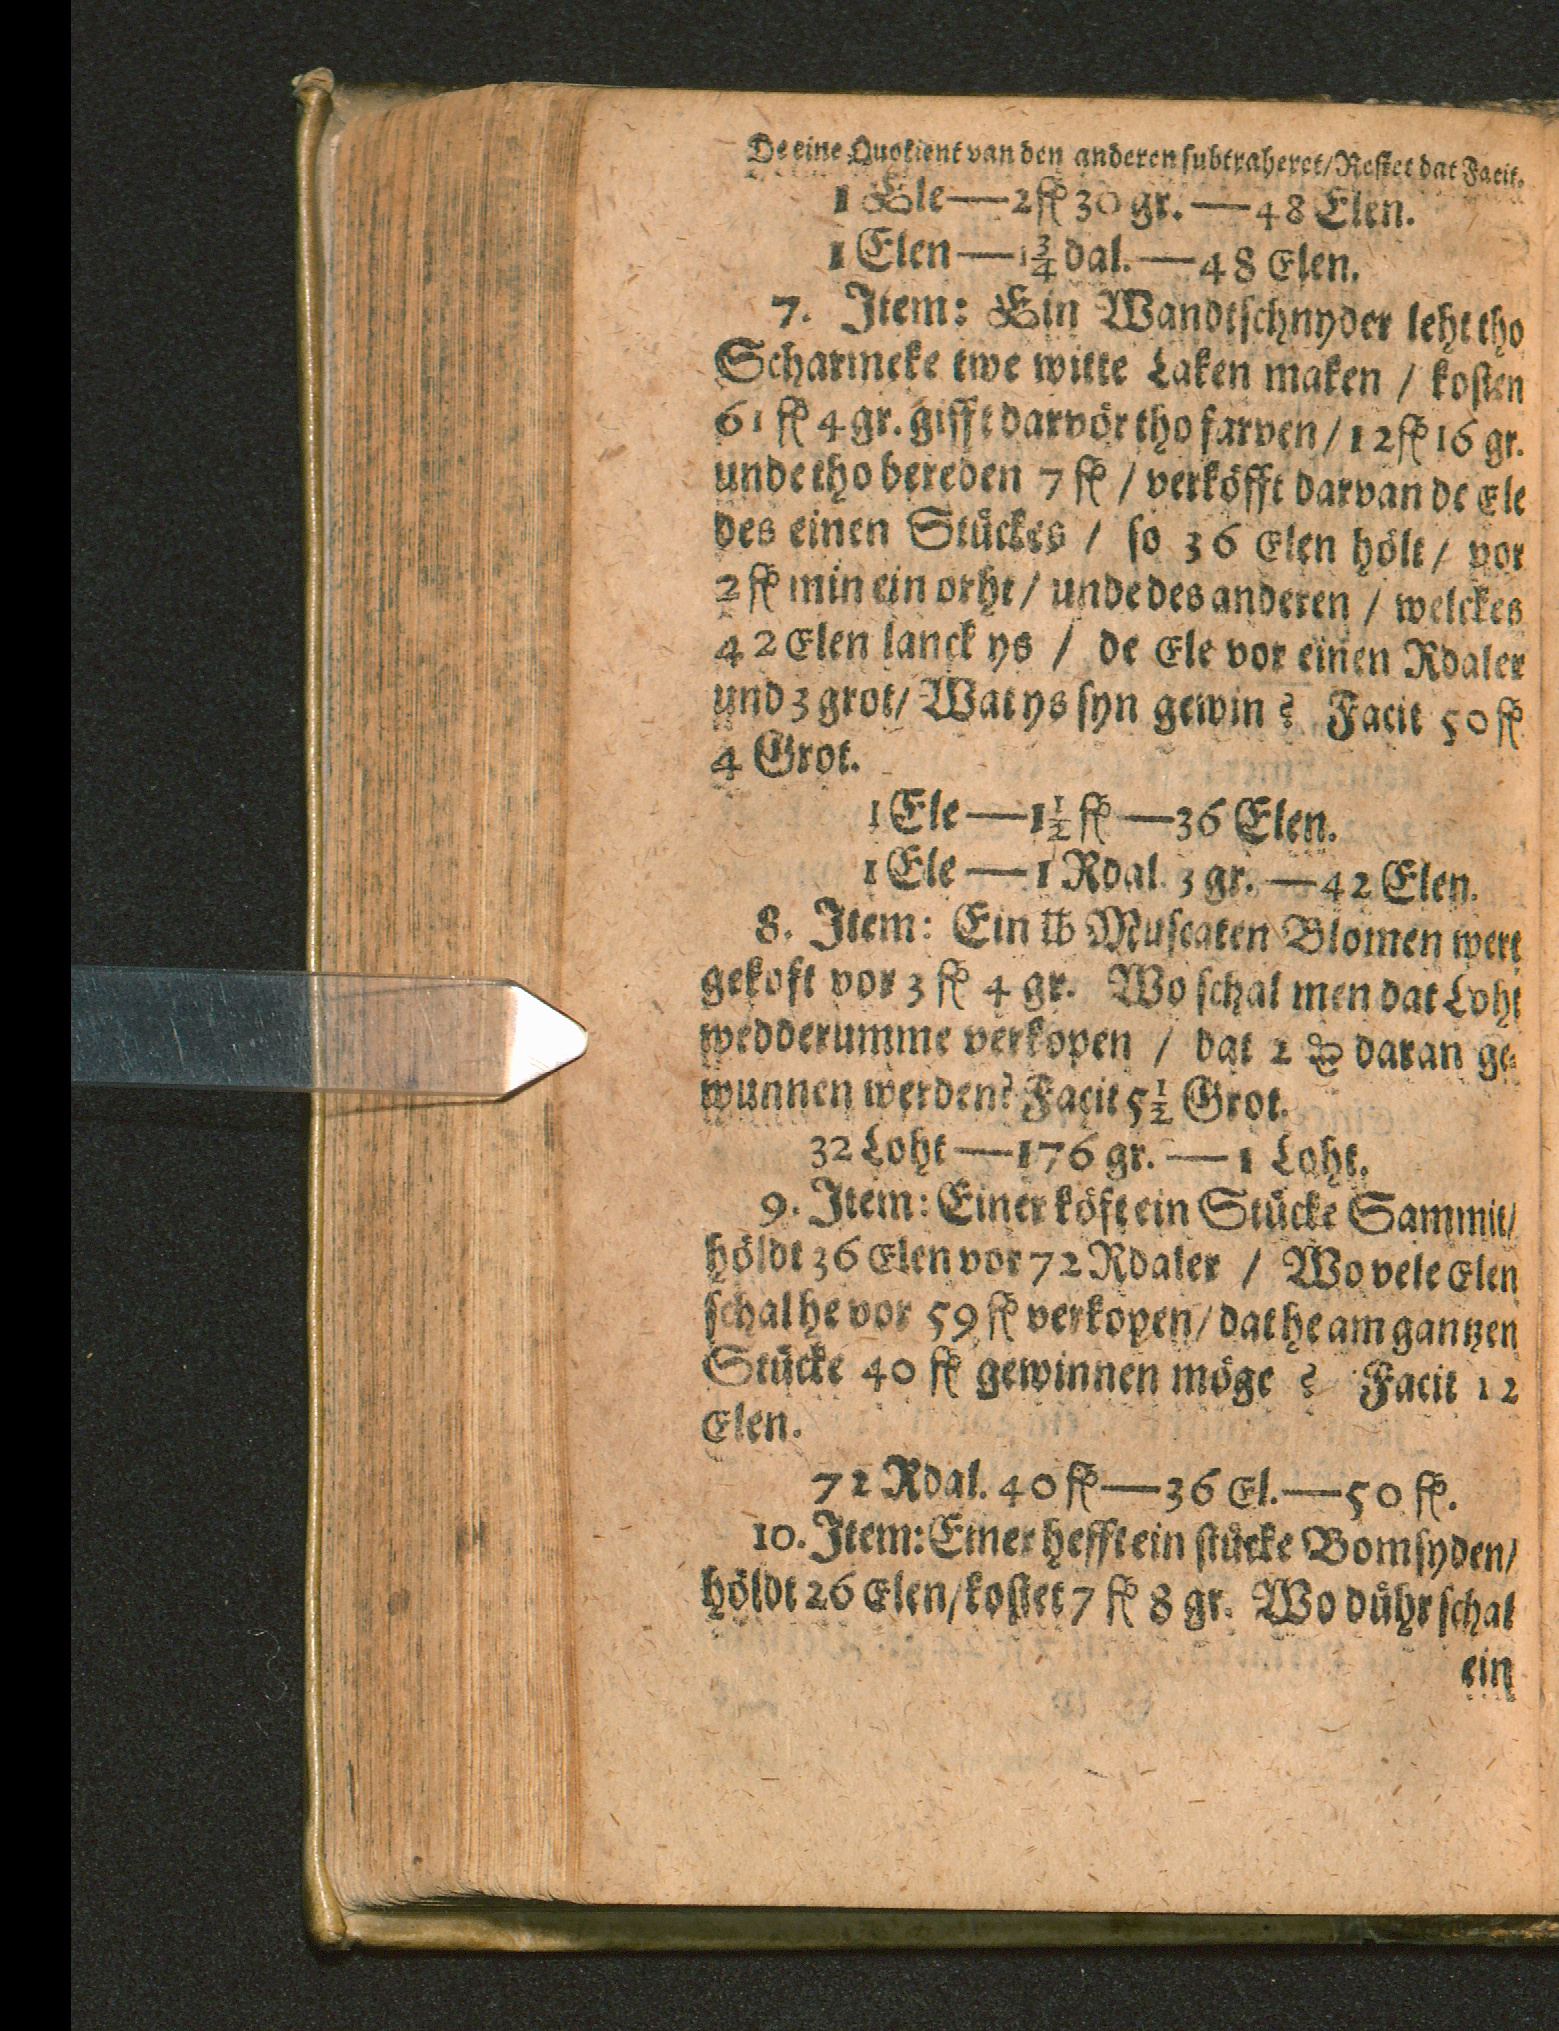 De eine Quotient van den anderen subtraheret/Restet dat Facit.
1 Ele—2 fl 30 gr.—48 Elen.
1 Elen—1 3/4 dal.—48 Elen.
7. Item: Ein Wandtschnyder leht tho
Scharmeke twe witte Laken maken / kosten
61 fl 4 gr. gifft darvör tho farven / 12 fl 16 gr.
unde tho bereden 7 fl / verköfft darvan de Ele
des einen Stückes / so 36 Elen hölt / vor
2 fl min ein orht / unde des anderen / welckes
42 Elen lanck ys / de Ele vor einen Rdaler
und 3 grot/ Wat ys syn gewin? Facit 50 fl
4 Grot.
1 Ele—1 1/2 fl—36 Elen.
1 Ele—1 Rdal. 3 gr.—42 Elen.
8. Item: Ein ℔ Muscaten Blomen wert
gekoft vor 3 fl 4 gr. Wo schal men dat Loht
wedderumme verkopen / dat 2 ₰ daran ge-
wunnen werden? Facit 5 1/2 Grot.
32 Loht—176 gr.—1 Loht.
9. Item: Einer köft ein Stücke Sammit/
höldt 36 Elen vor 72 Rdaler / Wo vele Elen
schal he vor 59 fl verkopen/ dat he am gantzen
Stücke 40 fl gewinnen möge? Facit 12
Elen.
72 Rdal. 40 fl—36 El.—50 fl.
10. Item: Einer hefft ein stücke Bomsyden/
höldt 26 Elen/kostet 7 fl 8 gr. Wo dühr schal
ein